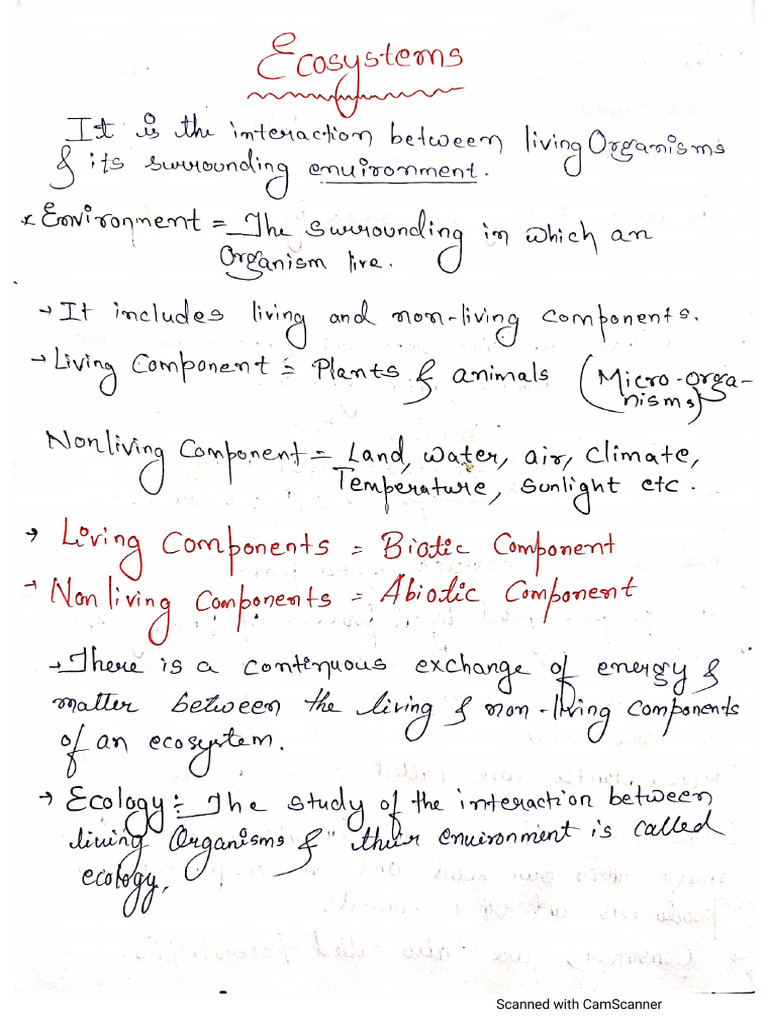 Ecosystems
It is the interaction between living Organisms
& its surrounding environment.
* Environment = The surrounding in which an
Organism live.
→ It includes living and non-living components.
→ Living Component = Plants & animals (Micro-orga-
nisms)
Nonliving Component = Land, water, air, climate,
Temperature, sunlight etc.
→ Living Components = Biotic Component
→ Non living Components = Abiotic Component
→ There is a continuous exchange of energy &
matter between the living & non-living components
of an ecosystem.
→ Ecology :- The study of the interaction between
living Organisms & " their environment is called
ecology,
Scanned with CamScanner